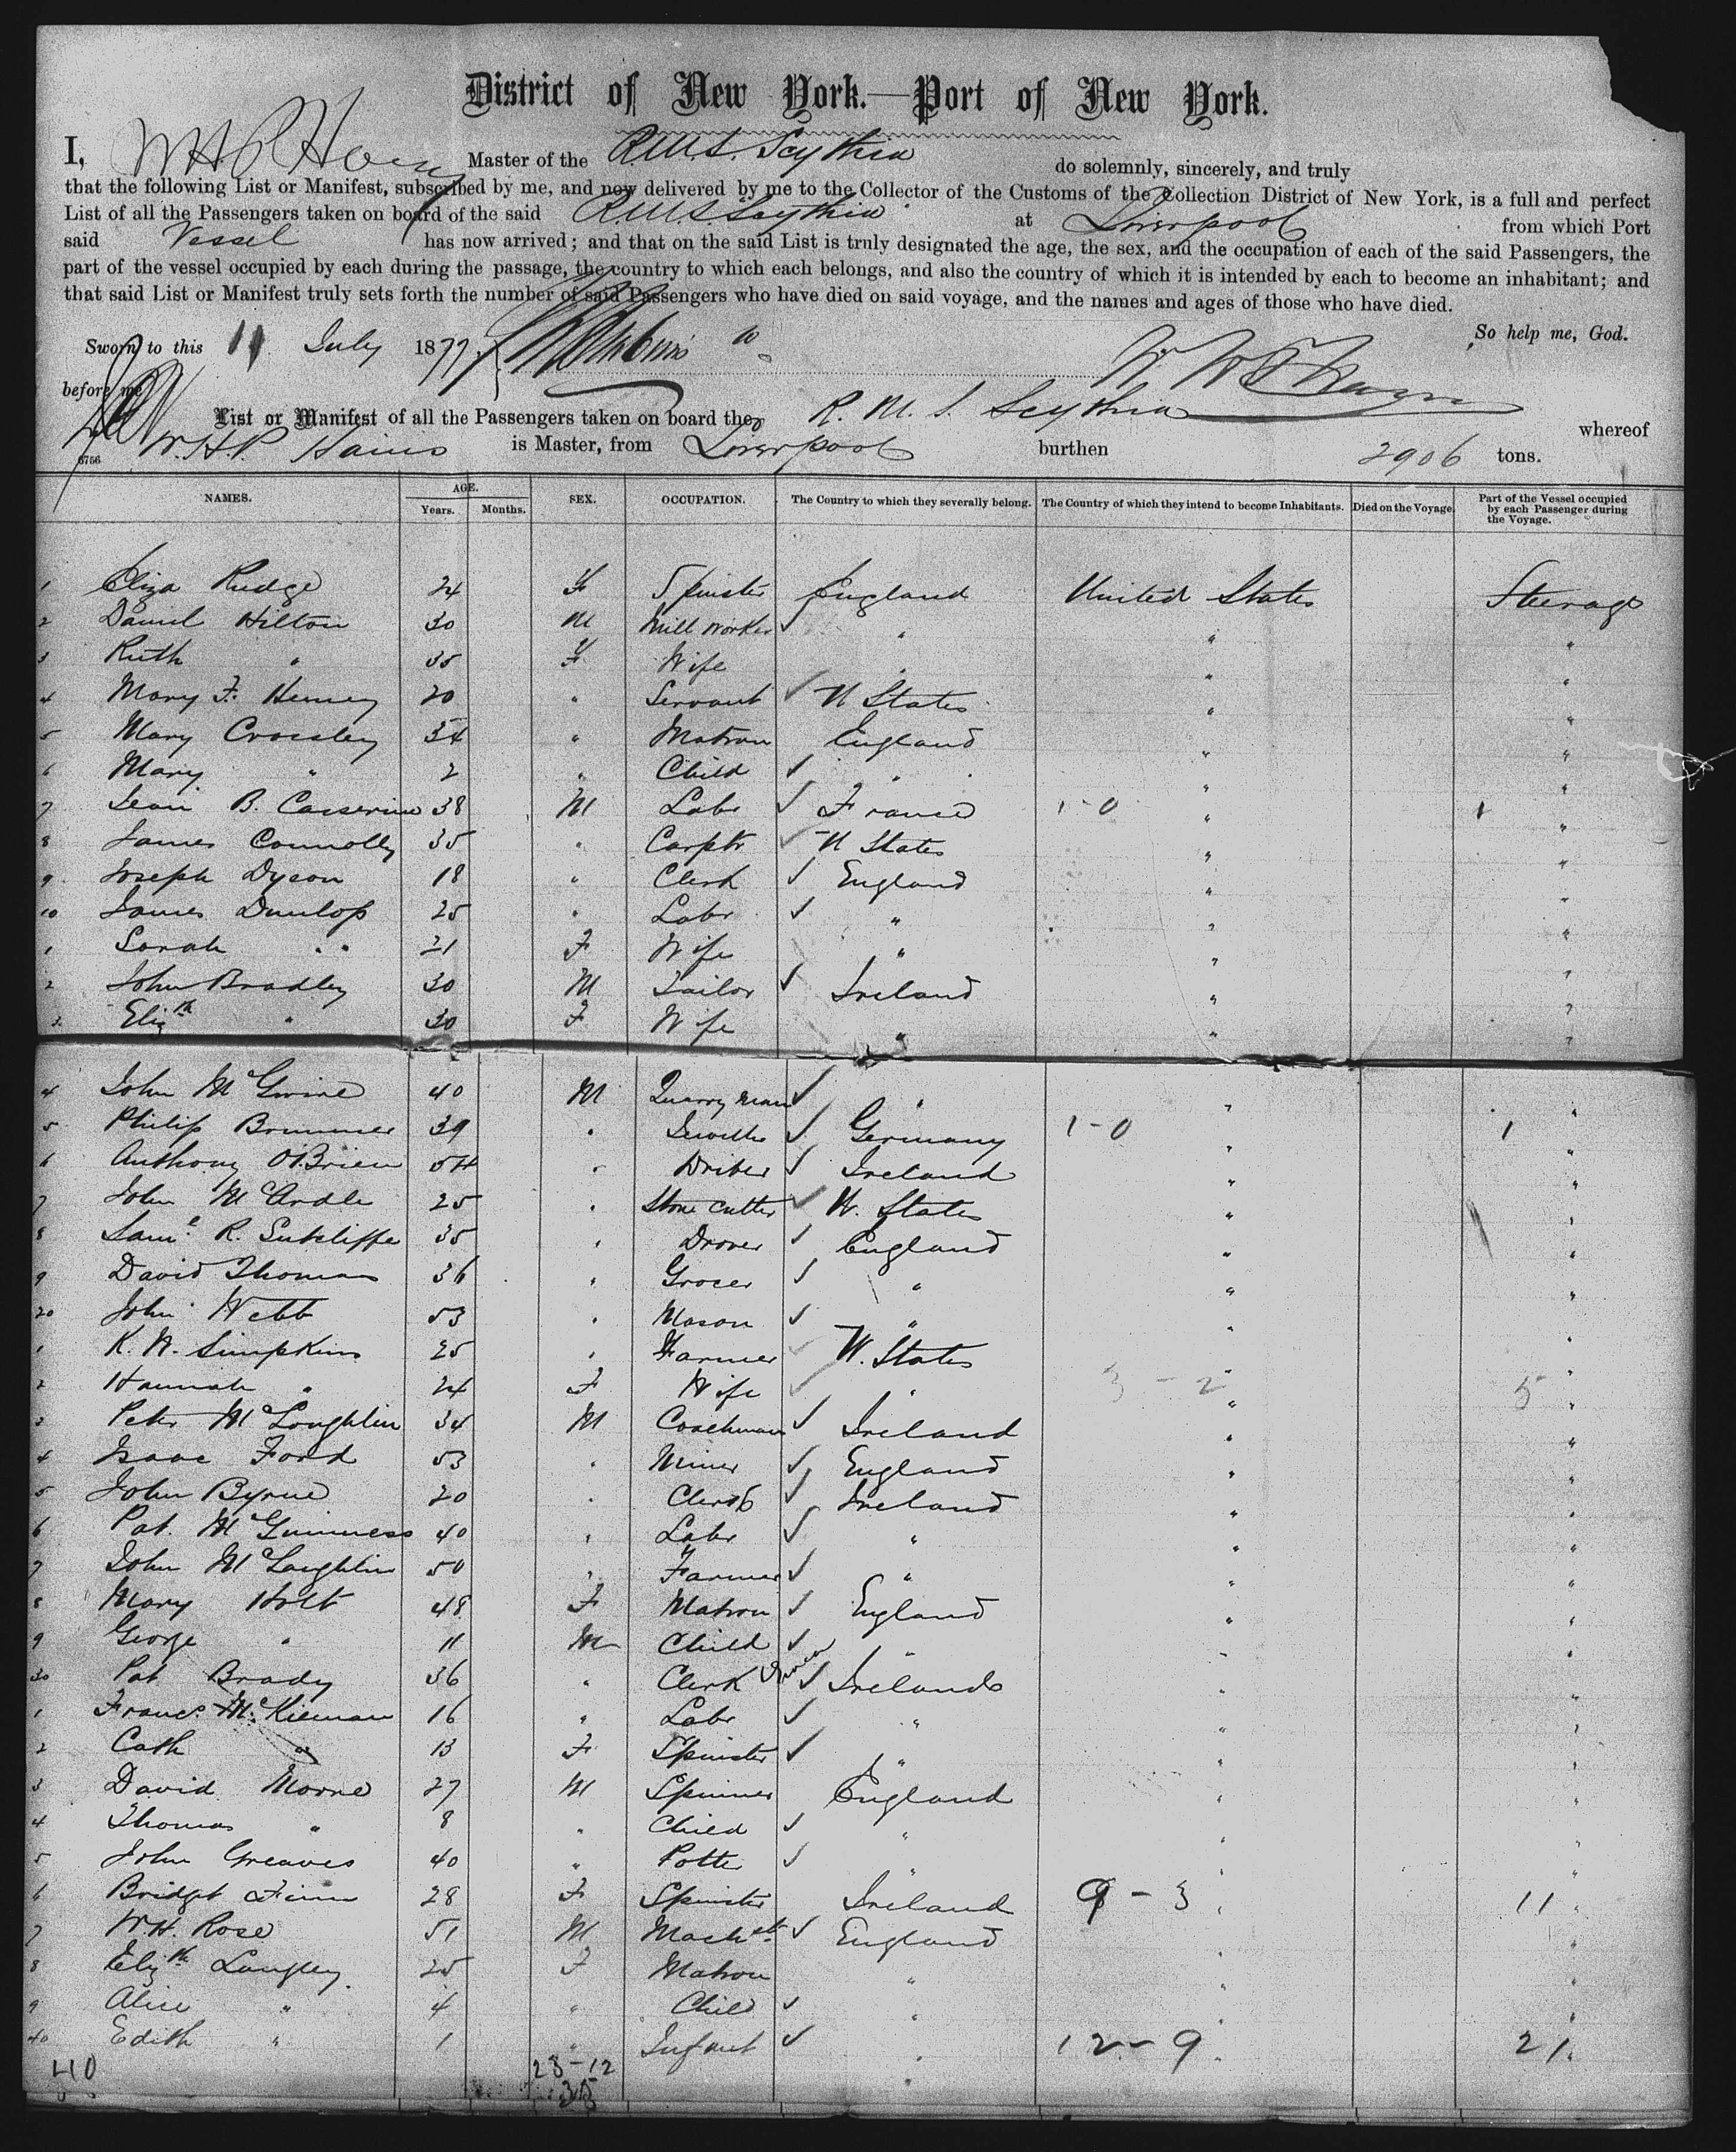 District of New York.—Port of New York.
I, Master of the R.M.S. Scythia do solemnly, sincerely, and truly
that the following List or Manifest, subscribed by me, and now delivered by me to the Collector of the Customs of the Collection District of New York, is a full and perfect
List of all the Passengers taken on board of the said R.M.S. Scythia at Liverpool from which Port
said Vessel has now arrived; and that on the said List is truly designated the age, the sex, and the occupation of each of the said Passengers, the
part of the vessel occupied by each during the passage, the country to which each belongs, and also the country of which it is intended by each to become an inhabitant; and
that said List or Manifest truly sets forth the number of said Passengers who have died on said voyage, and the names and ages of those who have died.
So help me, God.
Sworn to this 11 July 1877
before me
List or Manifest of all the Passengers taken on board the R. M. S. Scythia whereof
W.H.P. Hains is Master, from Liverpool burthen 2906 tons.
6756
NAMES. AGE. Years. Months. SEX. OCCUPATION. The Country to which they severally belong. The Country of which they intend to become Inhabitants. Died on the Voyage. Part of the Vessel occupied by each Passenger during the Voyage.
1 Eliza Rudge 24 F Spinster England United States Steerage
2 Daniel Hilton 30 M Mill Worker ✓ " " "
3 Ruth " 35 F Wife " " "
4 Mary F. 20 " Servant ✓ U States " "
5 Mary Crossley 34 " Matron England " "
6 Mary " 2 " Child ✓ " " "
7 Jean B. 38 M Labr ✓ France 1-0 " 1 "
8 James Connolly 35 " Carptr ✓ U States " "
9 Joseph Dyson 18 " Clerk ✓ England " "
10 James Dunlop 25 " Labr ✓ " " "
1 Sarah " 21 F Wife " " "
2 John Bradley 30 M Tailor ✓ Ireland " "
3 Elizth " 30 F Wife " " "
4 John 40 M Quarry man ✓ " " "
5 Philip Brummer 39 " ✓ Germany 1-0 " 1 "
6 Anthony O'Brien 54 " Driber ✓ Ireland " "
7 John McArdle 25 " Stone Cutter ✓ U. States " "
8 Saml R. Sutcliffe 35 " Drover ✓ England " "
9 David Thomas 36 " Grocer ✓ " " "
20 John Webb 53 " Mason ✓ " " "
1 K. W. Simpkins 25 " Farmer ✓ U. States " "
2 Hannah " 24 F Wife ✓ " 3-2 " 5 "
3 Peter McLoughlin 34 M Coachman ✓ Ireland " "
4 Isaac Ford 53 " Miner ✓ England " "
5 John Byrne 20 " Clerk ✓ Ireland " "
6 Pat. McGuinness 40 " Labr ✓ " " "
7 John McLoughlin 50 " Farmer ✓ " " "
8 Mary Holt 48 F Matron ✓ England " "
9 George " 11 M Child ✓ " " "
30 Pat Brady 36 " Clerk ✓ Ireland " "
1 Francs McKiernan 16 " Labr ✓ " " "
2 Cath " 13 F Spinster ✓ " " "
3 David Moore 27 M Spinner England " "
4 Thomas " 8 " Child ✓ " " "
5 John Greaves 40 " Potter ✓ " " "
6 Bridget Finn 28 F Spinster Ireland 9-3 " 11 "
7 W.H. Rose 51 M Machst ✓ England " "
8 Elizth Langley 25 F Matron " " "
9 Alice " 4 " Child ✓ " " "
40 Edith " 1 " Infant ✓ " 12-9 " 21 "
40 28-12